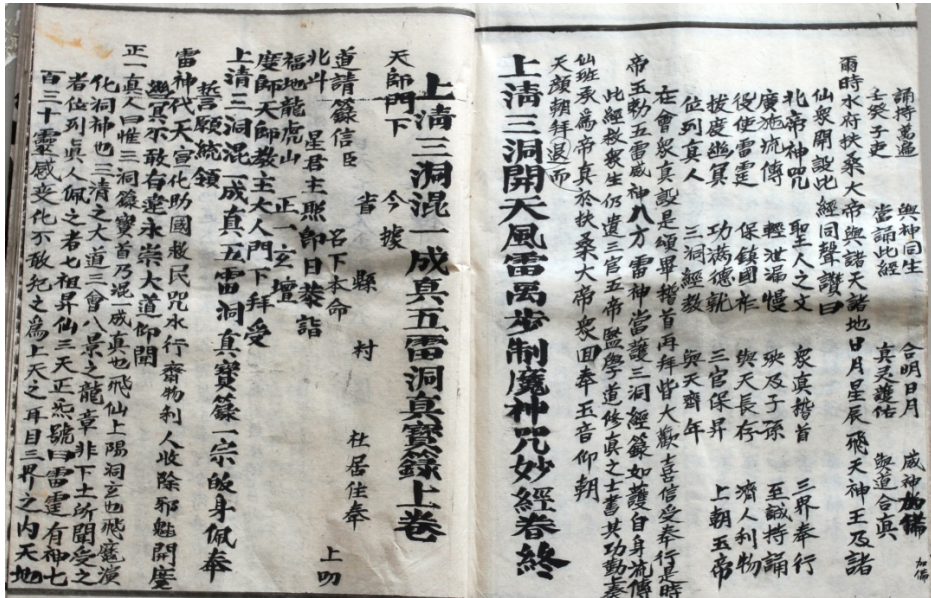 誦持萬遍 與神同生 合明日月 威神加備
壬癸子吏 當誦此經 真灵護佑 與道合真 加備
爾時水府扶桑大帝與諸天諸地日月星辰飛天神王及諸
仙衆開設此經同聲讚曰
北帝神咒 聖人之文 衆真稽首 三界奉行
廣施流傳 輕泄漏慢 殃及子孫 至誠持誦
役使雷霆 保鎮國祚 與天長存 濟人利物
拔度幽冥 功滿德就 三官保昇 上朝玉帝
位列真人 三洞經教 與天齊年
在會衆真設是頌畢稽首再拜皆大歡喜信受奉行是時
帝五勅五雷威神八方雷神當護三洞經錄如護自身流傳
此經救衆生仍遣三官五帝監學道修真之士書其功勤奏
仙班承爲帝真於扶桑大帝衆回奉玉音仰朝
天顔朝拜退而
上淸三洞開天風雷禹步制魔神咒妙經卷終
上淸三洞混一成真五雷洞真寶籙上卷
天師門下 今據
省 縣 村 社居住奉
道請籙信臣 名下本命 上叩
北斗 星君主照即日恭詣
福地龍虎山 正一玄壇
度師天師教主大人門下拜受
上清三洞混一成真五雷洞真寶籙一宗皈身佩奉
誓願統領
雷神代天宣化助國救民咒水行齋物利人收除邪魁開度
幽冥不敢有違永崇大道仰開
正一真人曰惟三洞籙寶首乃混成真也飛仙上陽洞玄也飛魔演
化洞神也三清之大道三會八景之龍章非下土所聞受之
者位列眞人佩之者七祖昇仙三天正炁號曰雷霆有神七
百三十靈感变化不敢紀之爲上天之耳目三界之内天地